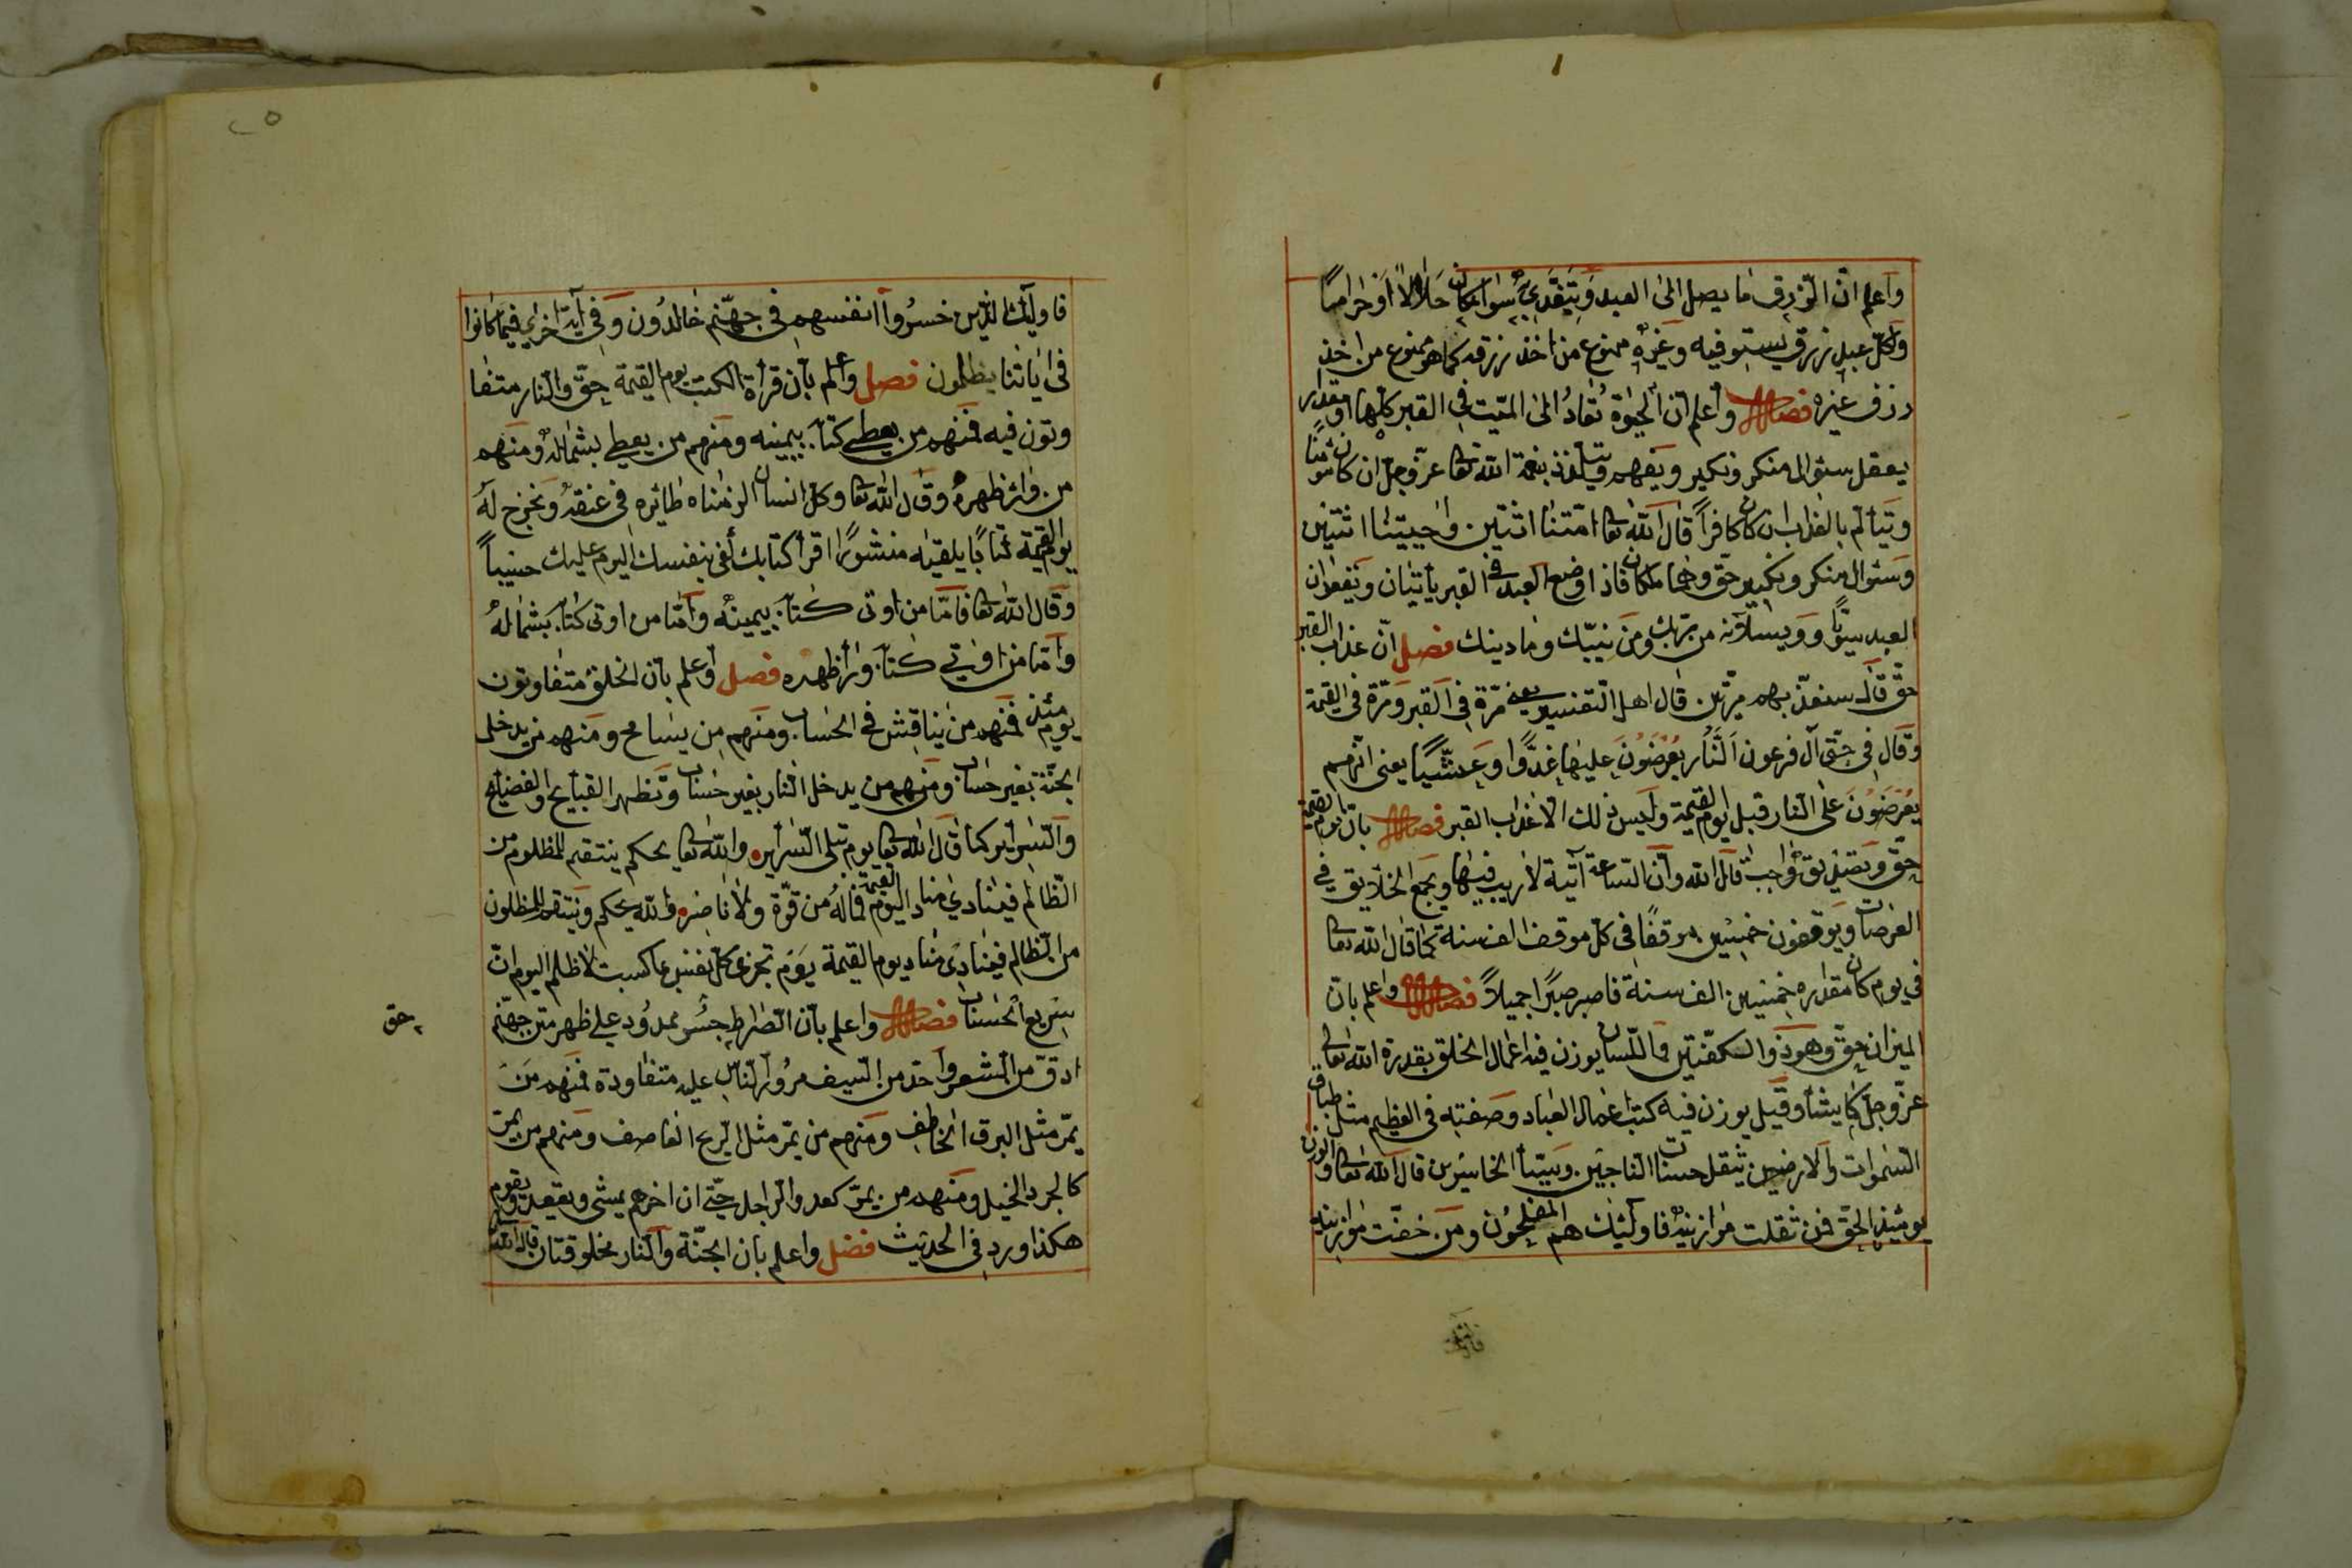 واعلم ان الرزق ما يصل الى العبد ويتغدى به سواء كان حلالا او حراما
وكل عبد رزق يستوفيه وغيره ممنوع من اخذ رزقه كما هو ممنوع من اخذ
رزق غيره فصل واعلم ان الحيوة تعاد الى الميت في القبر كلها او مقدار
يعقل سئوال منكر ونكير ويفهم ويتلذذ بنعمة الله تعا عز وجل ان كان مؤمنا
ويتألم بالعذاب ان كان كافرا قال الله تعا امتنا اثنتين واحييتنا اثنتين
وسئوال منكر ونكير حق وهما ملكان فاذا وضع العبد في القبر يأتيان ويقعدان
العبد سويا ويسئلانه من ربك ومن نبيك وما دينك فصل ان عذاب القبر
حق قال سنعذبهم مرتين قال اهل التفسير يعني مرة في القبر ومرة في القيمة
وقال في حق آل فرعون النار يعرضون عليها غدوا وعشيا يعنى انهم
يعرضون على النار قبل يوم القيمة وليس ذلك الا عذاب القبر فصل بان يوم القيمة
حق وتصديقه واجب قال الله وان الساعة آتية لا ريب فيها ويجمع الخلايق في
العرصات ويوقفون خمسين موقفا في كل موقف الف سنة كما قال الله تعا
في يوم كان مقداره خمسين الف سنة فاصبر صبرا جميلا فصل واعلم بان
الميزان حق وهو ذو الكفتين واللسان يوزن فيه اعمال الخلق بقدرة الله تعالى
عز وجل كما يشأ وقيل يوزن فيه كتب اعمال العباد وصفته في العظم مثل طباق
السموات والارضين تثقل حسنات الناجين وسيئا الخاسرين قال الله تعا والوزن
يومئذ الحق فمن ثقلت موازينه فاولئك هم المفلحون ومن خفت موازينه
فاولئك
٢٥
فاولئك الذين خسروا انفسهم في جهنم خالدون وفي آية اخرى فيما كانوا
في اياتنا يظلمون فصل واعلم بان قرأة الكتب يوم القيمة حق والنار متفا
وتون فيه فمنهم من يعطى كتابه بيمينه ومنهم من يعطى بشماله ومنهم
من وراء ظهره وقال الله تعا وكل انسان الزمناه طائره في عنقه ونخرج له
يوم القيمة كتابا يلقيه منشورا اقرأ كتابك كفى بنفسك اليوم عليك حسيبا
وقال الله تعا فاما من اوتى كتابه بيمينه واما من اوتى كتابه بشماله
واما من اوتي كتابه وراء ظهره فصل واعلم بان الخلق متفاوتون
يومئذ فمنهم من يناقش في الحساب ومنهم من يسامح ومنهم من يدخل
الجنة بغير حساب ومنهم من يدخل النار بغير حساب وتظهر القبايح والفضايح
والسراير كما قال الله تعا يوم تبلى السراير والله تعا يحكم ينتقم للمظلوم من
الظالم فينادي مناد اليوم القيمة فماله من قوة ولا ناصر والله يحكم وينتقم للمظلون
من الظالم فينادى مناد يوم القيمة يوم تجزى كل نفس بما كسبت لا ظلم اليوم ان
سريع الحساب فصل واعلم بان الصراط جسر ممدود على ظهر متن جهنم
حق
ادق من الشعر واحد من السيف مرور الناس عليه متفاوتة فمنهم من
يمر مثل البرق الخاطف ومنهم من يمر مثل الريح العاصف ومنهم من يمر
كالجرد الخيل ومنهم من يمر كعدو الراجل حتى ان اخرهم يمشى ويقعد ويقوم
هكذا ورد في الحديث فصل واعلم بان الجنة والنار مخلوقتان قال الله